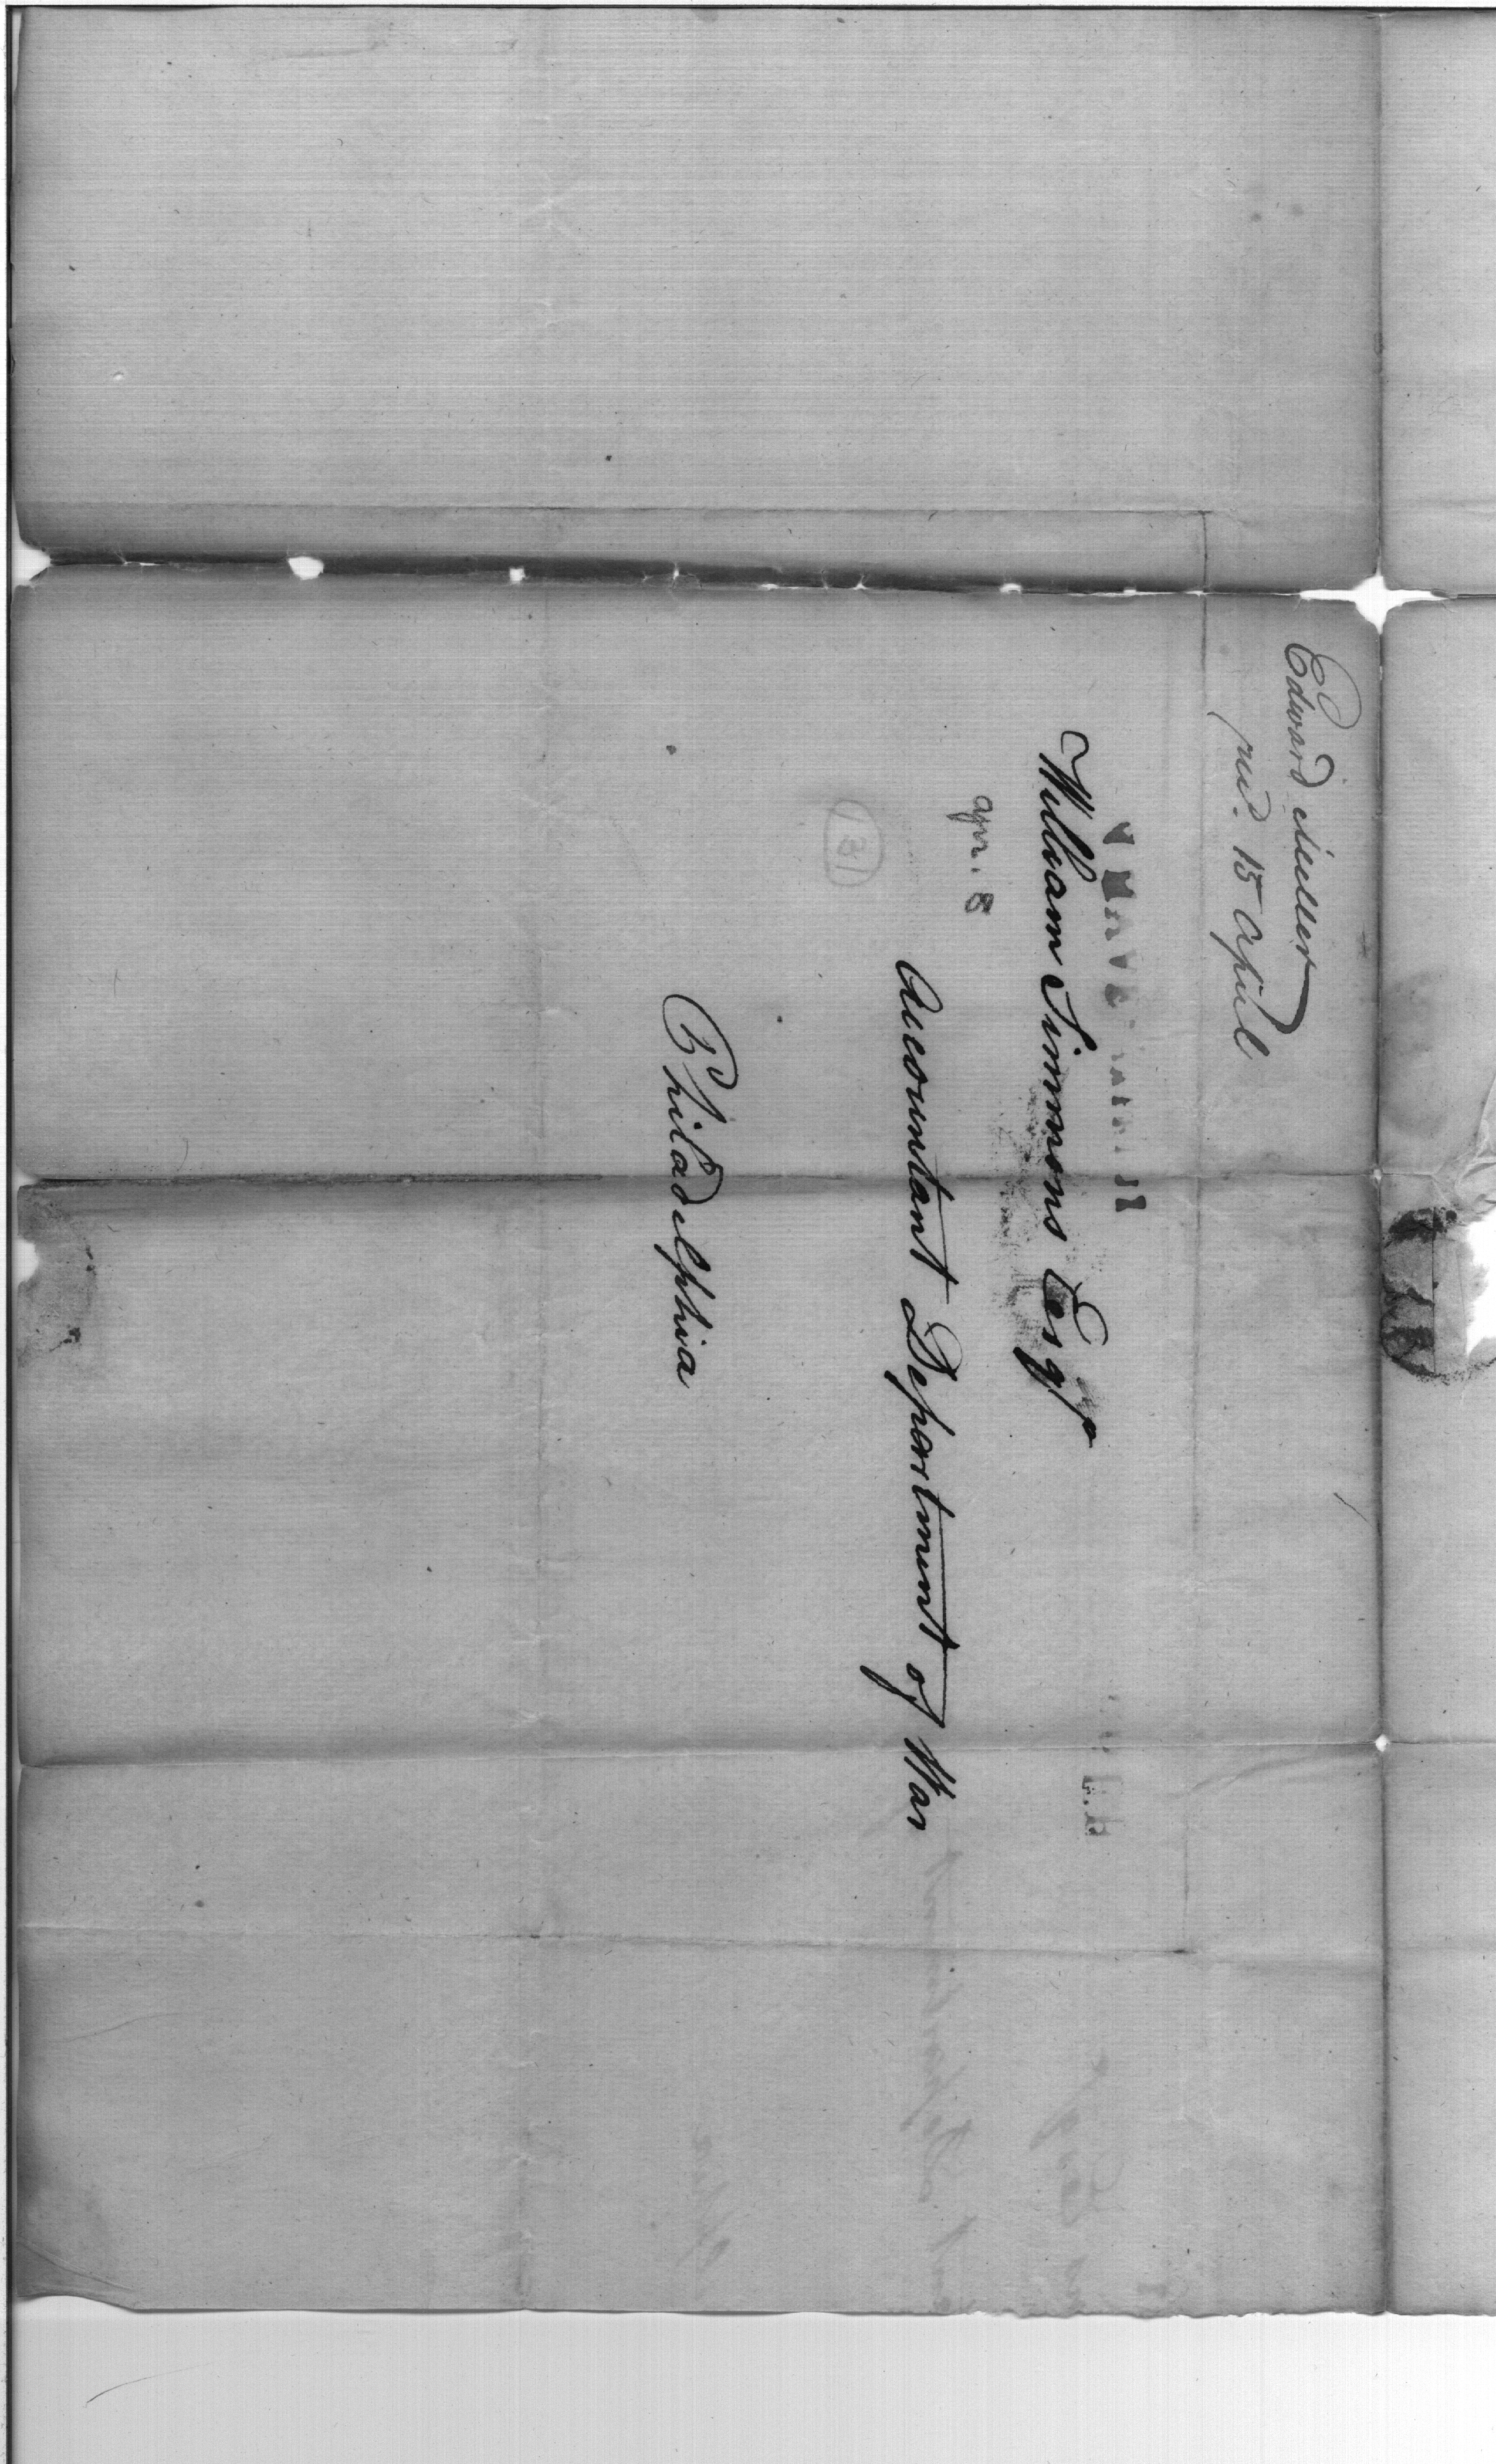 Edward Miller
recd. 15 April
William Simmons Esqr
apr. 8
Accountant Department of War
131
Philadelphia